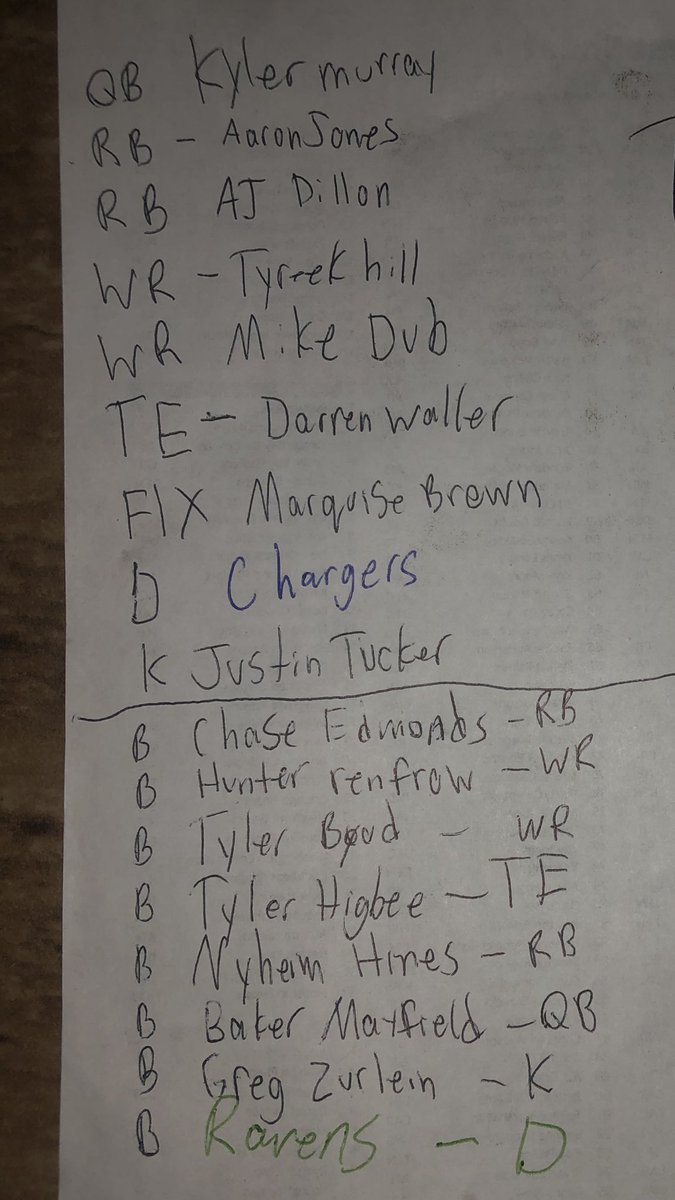 QB Kyler murray
RB - Aaron Jones
RB AJ Dillon
WR - Tyreek hill
WR Mike Dub
TE - Darren Waller
FlX Marquise Brown
D Chargers
K Justin Tucker
B Chase Edmonds - RB
B Hunter renfrow - WR
B Tyler Boyd - WR
B Tyler Higbee - TE
B Nyheim Hines - RB
B Baker Mayfield - QB
B Greg Zurlein - K
B Ravens - D